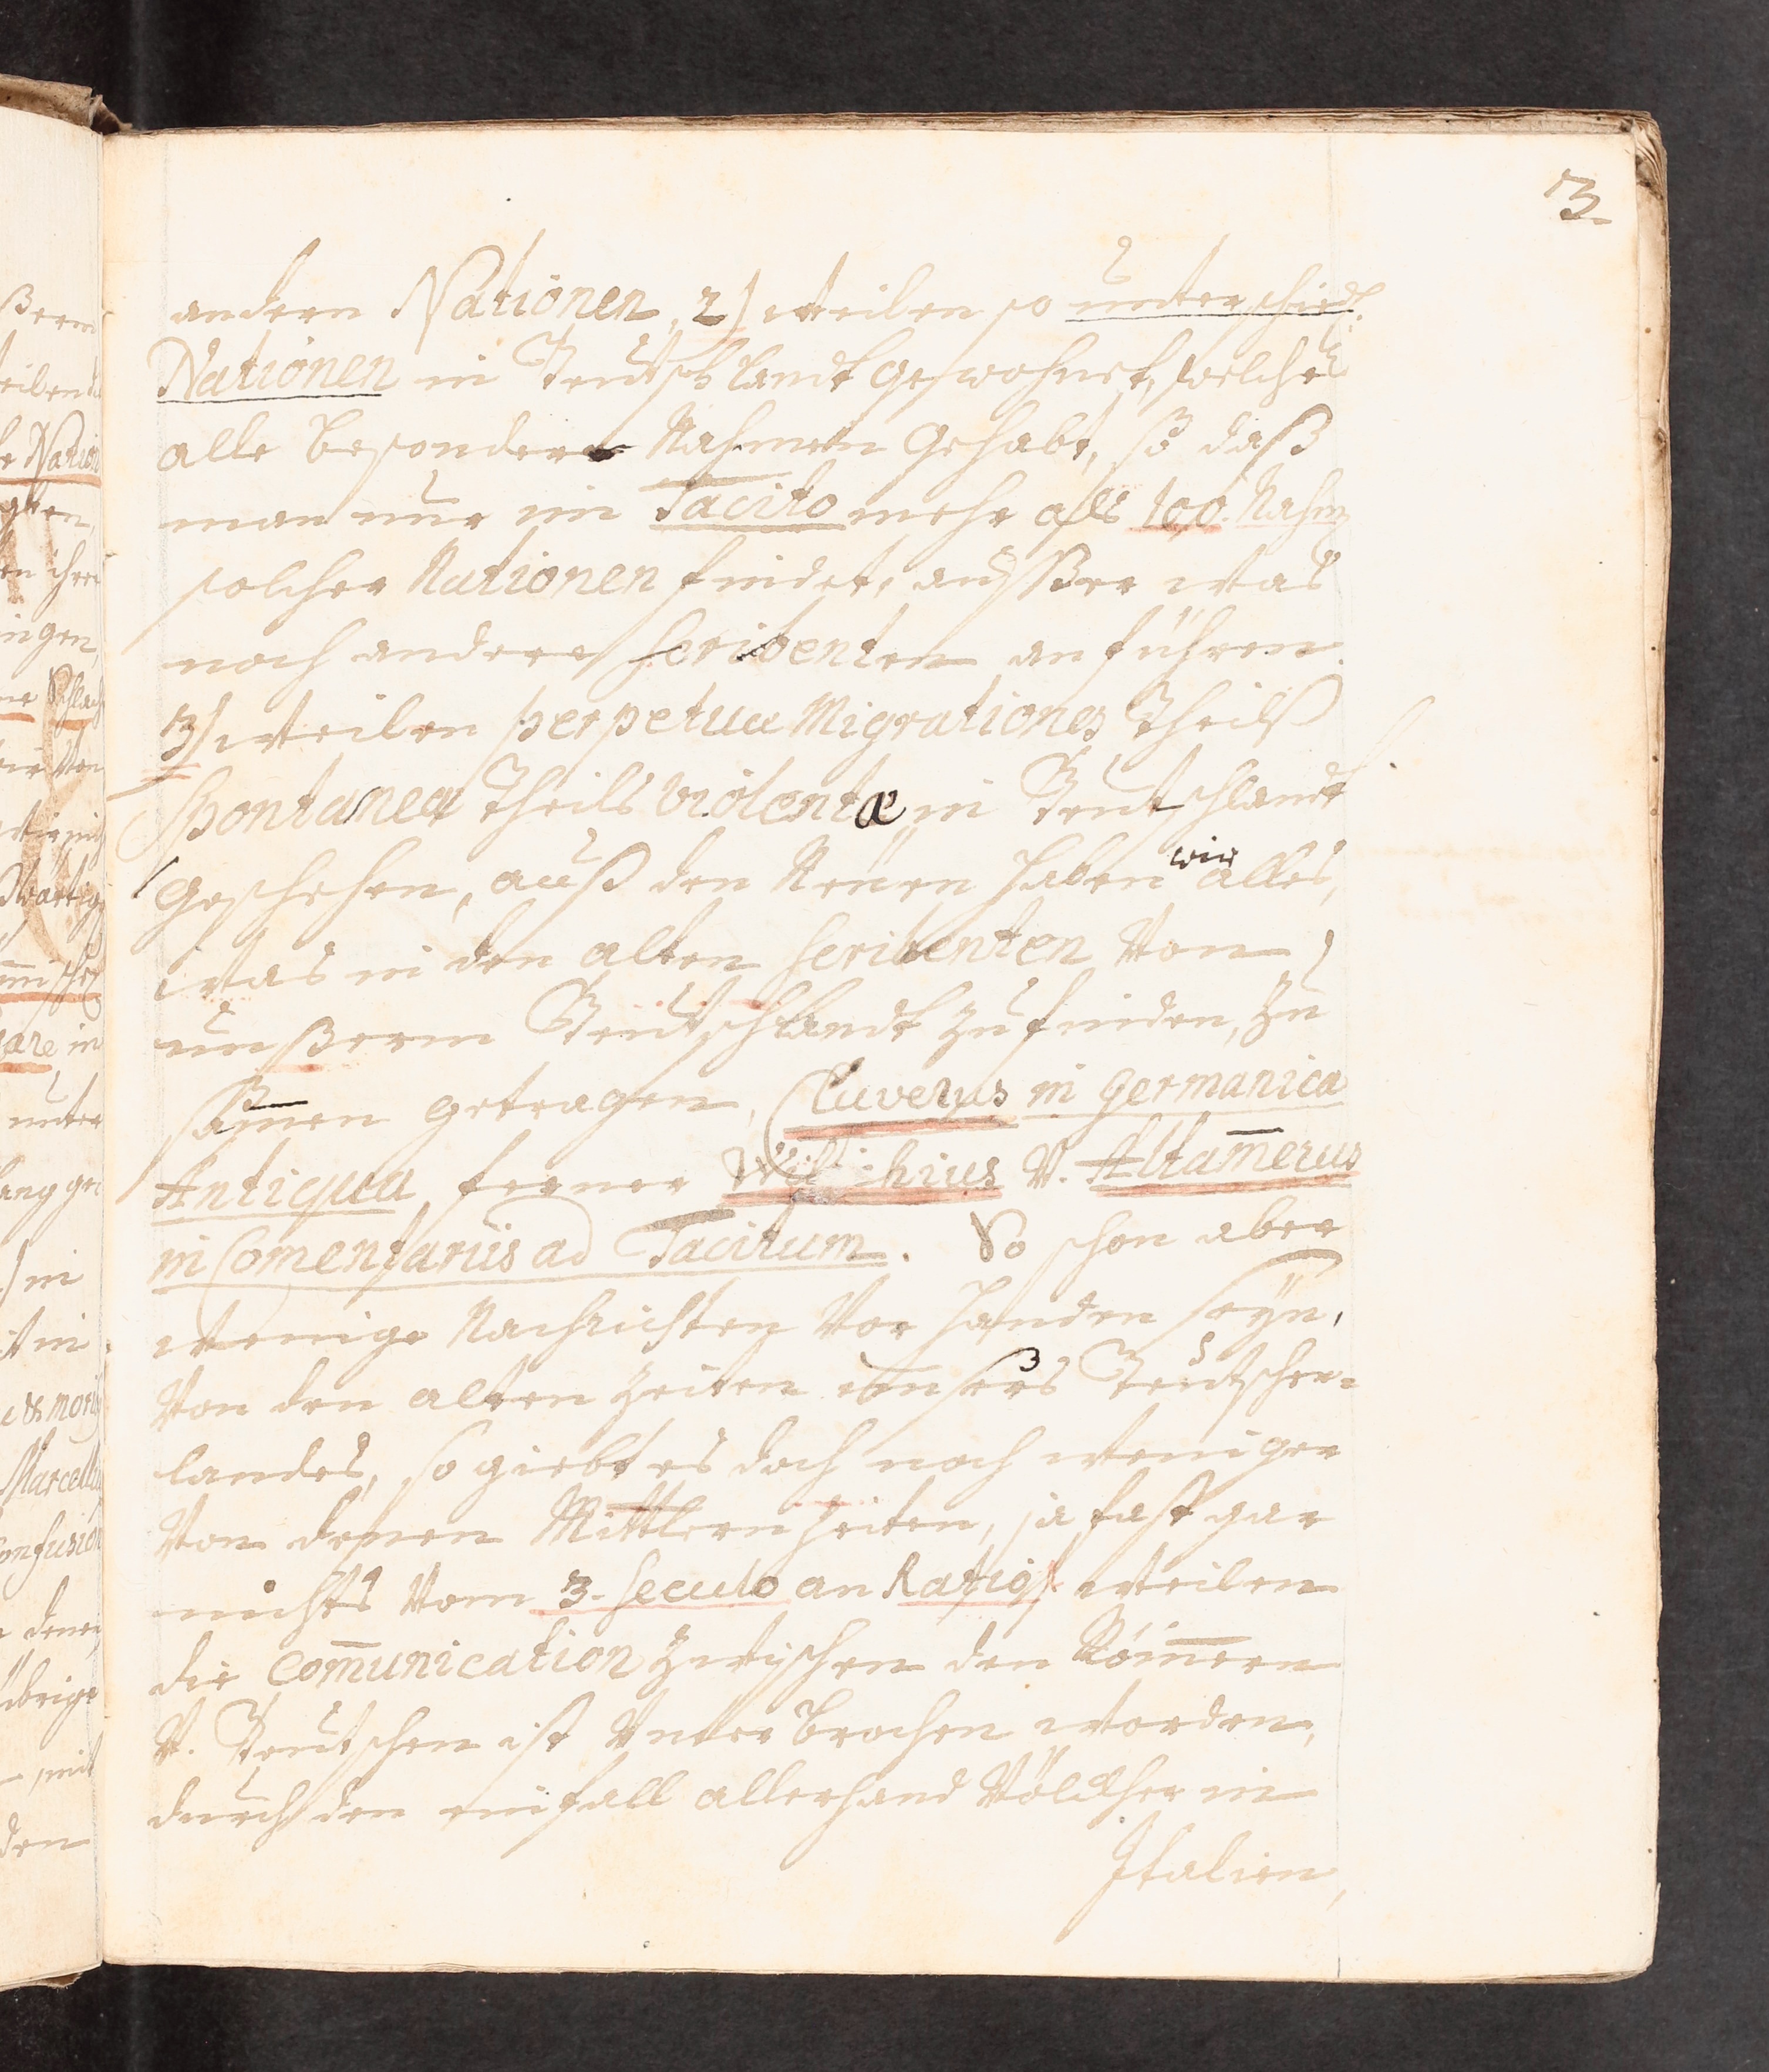 3
andern Nationen, 2) weilen so unterschiedl.
Nationen in Teutschlandt gewohnet, welche
alle besondere Nahmen gehabt, so daß
man nur im Tacito mehr alß 100. Nahmen
solcher Nationen findet, außßer was
noch andere Scribenten anführen.
3) weilen perpetuæ Migrationes Theilß
Spontaneæ Theils violentæ, in Teutschlandt
geschehen, auß den Neuen haben wir alles,
was in den alten Scribenten von
unßerm Teutschlandt zufinden, zu
samen getragen, Cluverus in Germanica
Antiqua, ferner V. Altamerus
in Comentariis ad Tacitum. So schon aber
wenige Nachrichten Vor handen seÿn,
Von den alten Zeiten unsers Teutschen-
landes, so giebt es doch noch weniger
Von denen Mittlern Zeiten, ja fast gar
nichts Vom 3. Seculo an weilen
die comunication zwischen den Römern
V. Teutschen ist Unter brochen worden,
durch den einfall allerhand Völcker in
Italien,